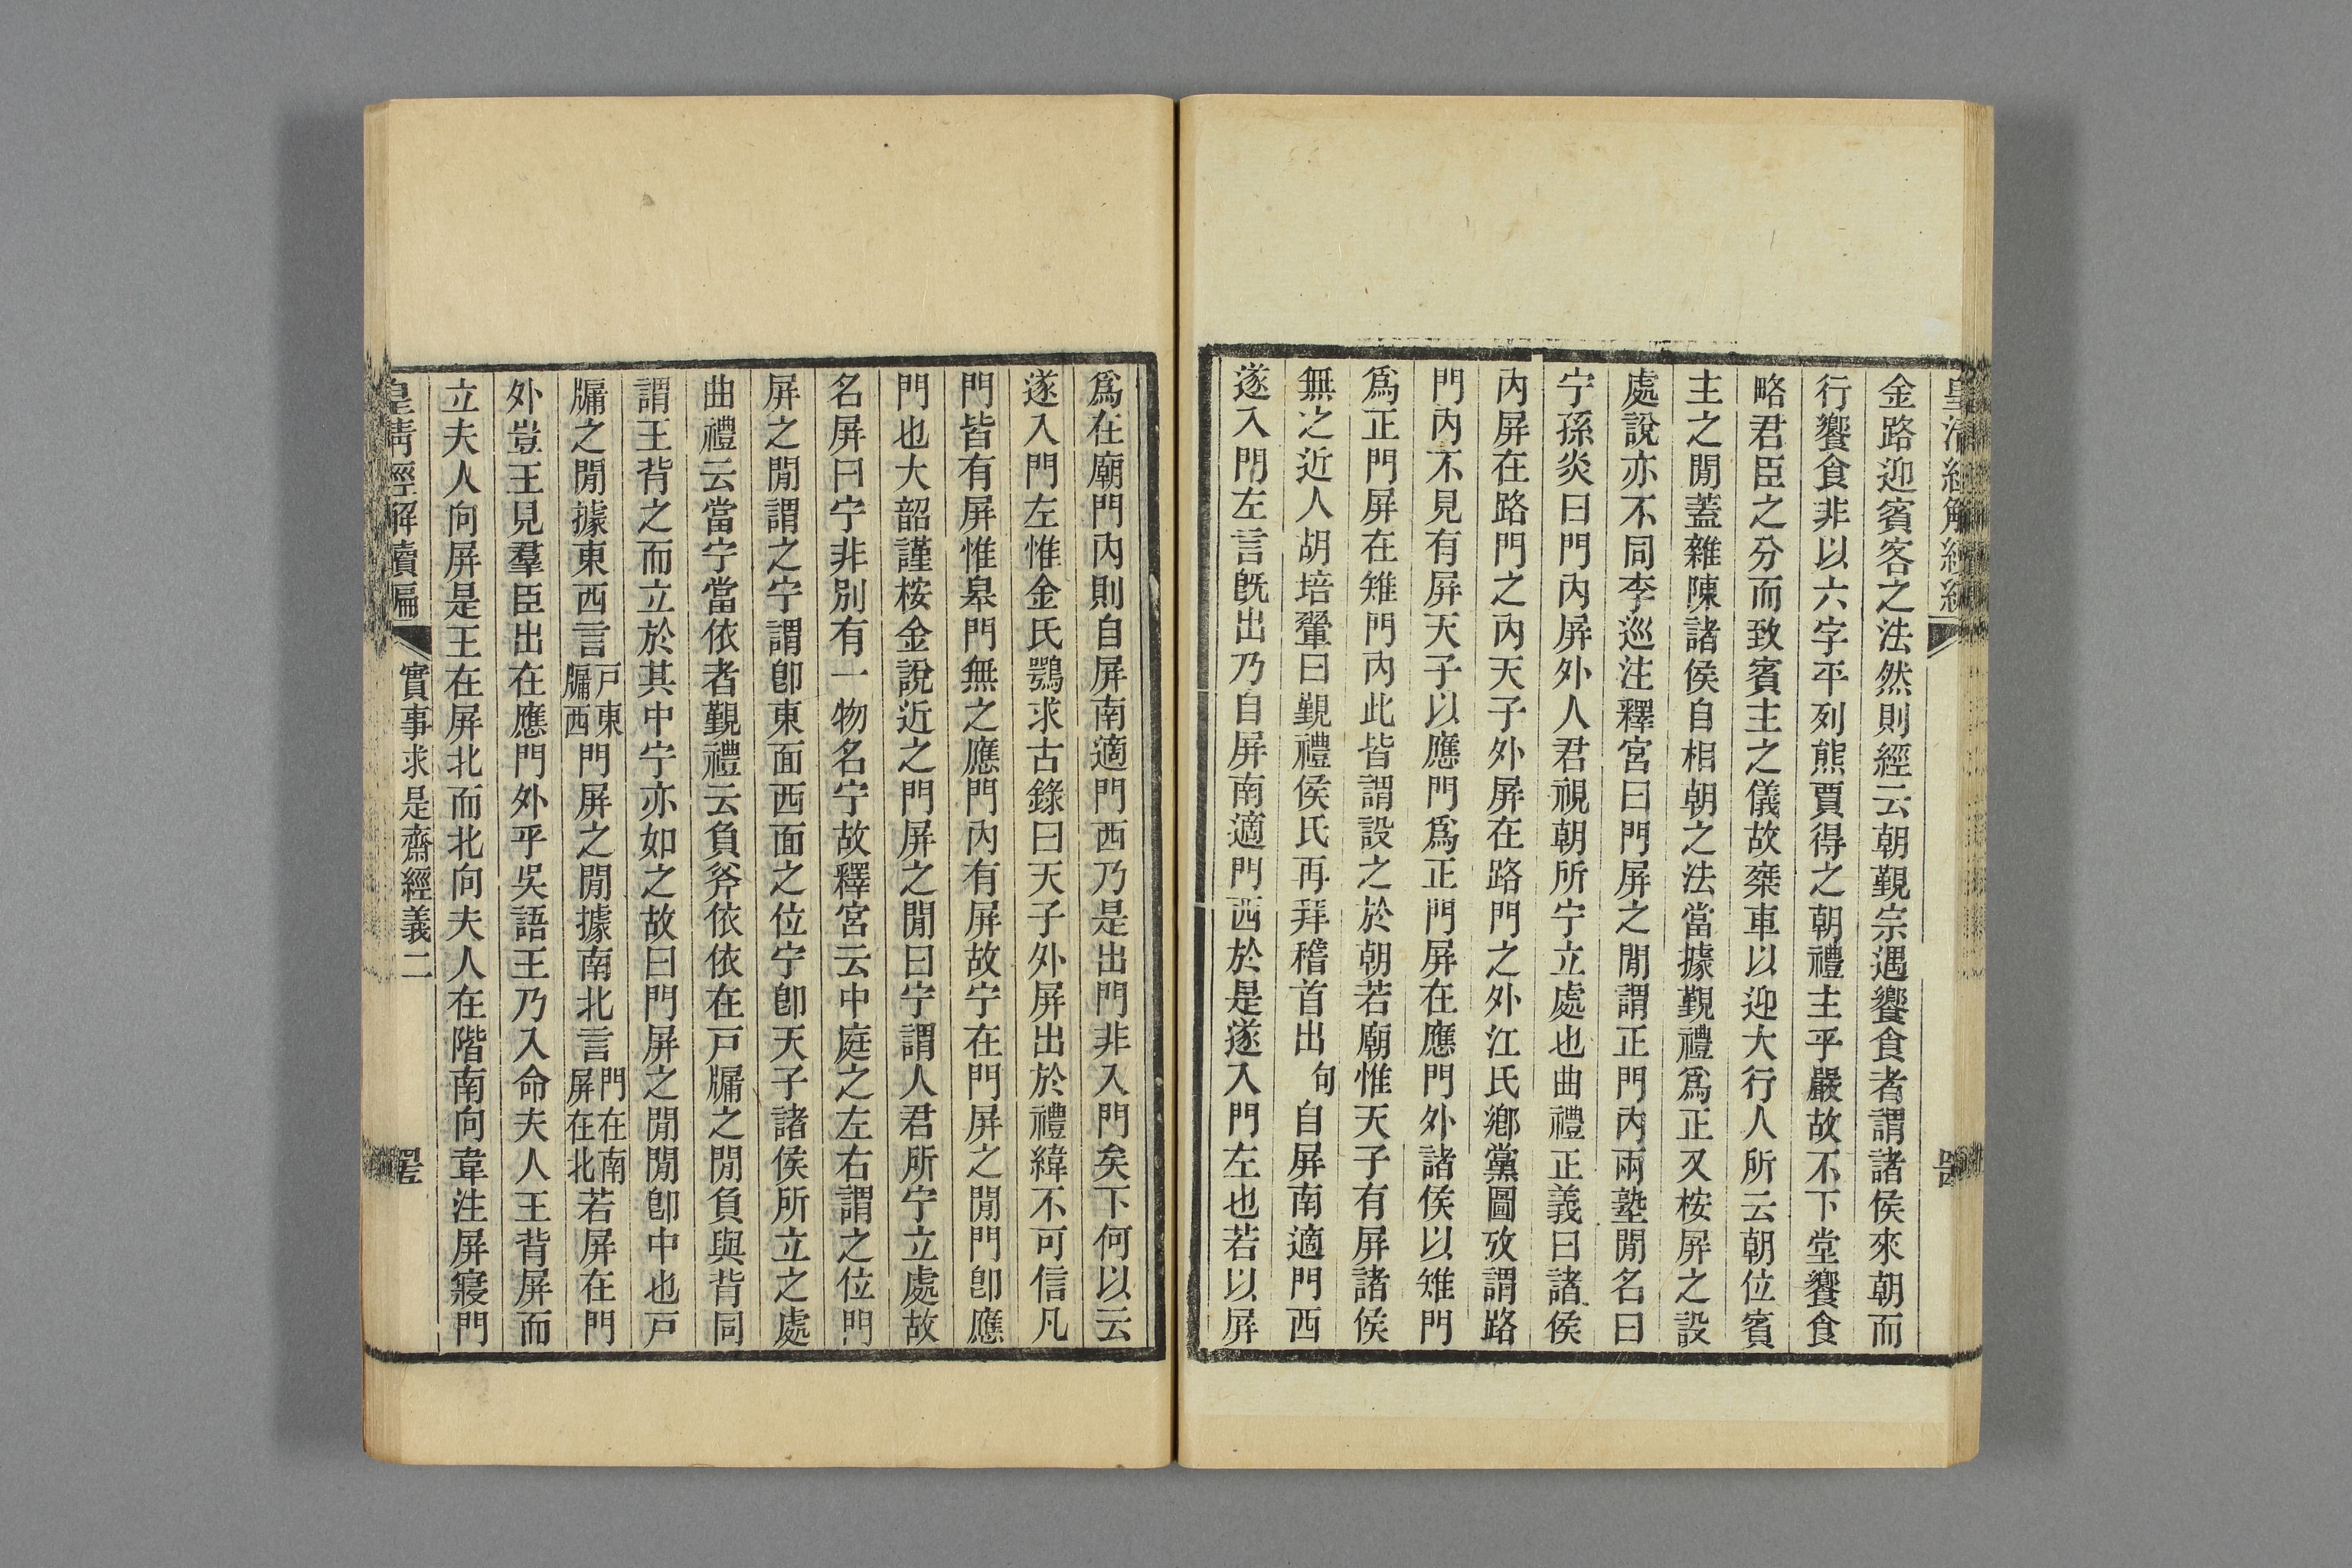 皇清經解續編
金路迎賓客之法然則經云朝覲宗遇饗食者謂諸侯來朝而
行饗食非以六字平列熊賈得之朝禮主乎嚴故不下堂饗食
略君臣之分而致賓主之儀故椉車以迎大行人所云朝位賓
主之閒蓋雜陳諸侯自相朝之法當據覲禮爲正又桉屏之設
處說亦不同李巡注釋宮曰門屏之閒謂正門內兩塾閒名曰
宁孫炎曰門內屏外人君視朝所宁立處也曲禮正義曰諸侯
內屏在路門之內天子外屏在路門之外江氏鄉黨圖攷謂路
門內不見有屏天子以應門爲正門屏在應門外諸侯以雉門
爲正門屏在雉門內此皆謂設之於朝若廟惟天子有屏諸侯
無之近人胡培翬曰覲禮侯氏再拜稽首出句自屏南適門西
遂入門左言旣出乃自屏南適門西於是遂入門左也若以屏
爲在廟門內則自屏南適門西乃是出門非入門矣下何以云
遂入門左惟金氏鶚求古錄曰天子外屏出於禮緯不可信凡
門皆有屏惟臯門無之應門內有屏故宁在門屏之閒門卽應
門也大韶謹桉金說近之門屏之閒曰宁謂人君所宁立處故
名屏曰宁非別有一物名宁故釋宮云中庭之左右謂之位門
屏之閒謂之宁謂卽東面西面之位宁卽天子諸侯所立之處
曲禮云當宁當依者覲禮云負斧依依在戸牖之閒負與背同
謂王背之而立於其中宁亦如之故曰門屏之閒閒卽中也戸
牖之閒據東西言戸東牖西門屏之閒據南北言門在南屏在北若屏在門
外豈王見羣臣出在應門外乎吳語王乃入命夫人王背屏而
立夫人向屏是王在屏北而北向夫人在階南向韋注屏寢門
皇清經解續編 實事求是齋經義二